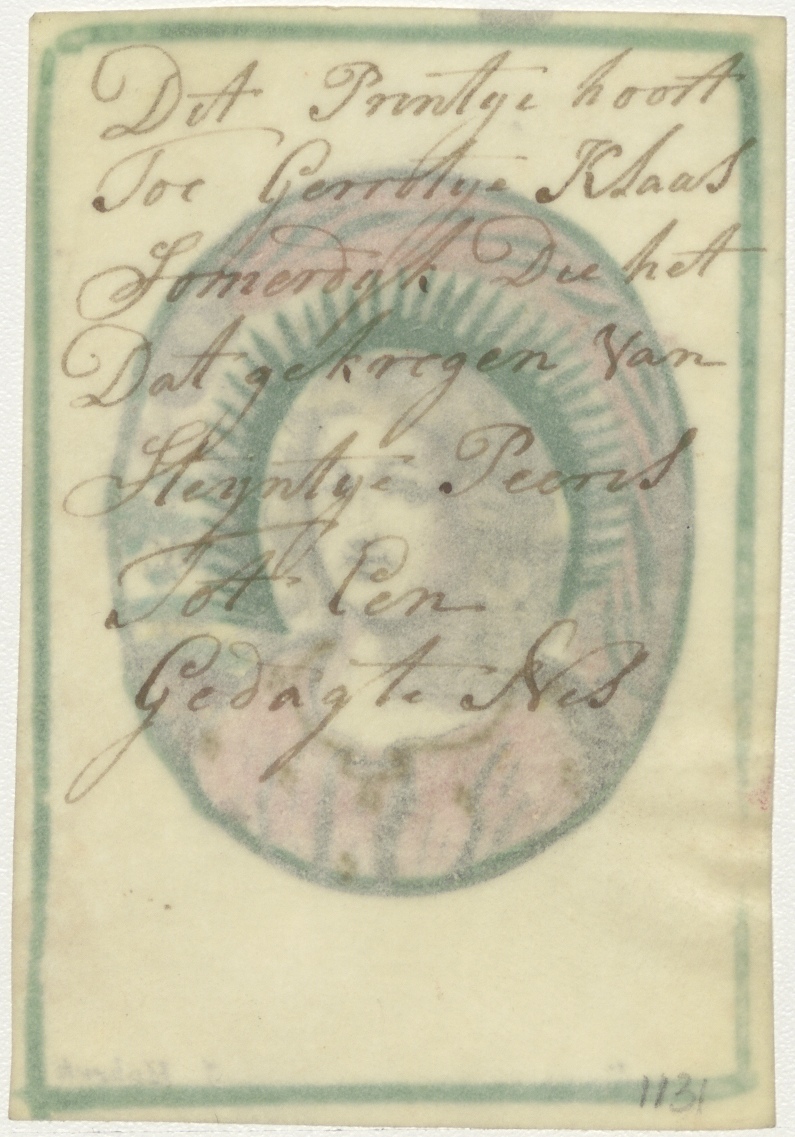 Dit Printye hoort
Toe Gerrotye Klaas
Somerdyk Die het
Dat gekregen Van
Steyntye Peeris
Tot Een
Gedagte Nis
1131